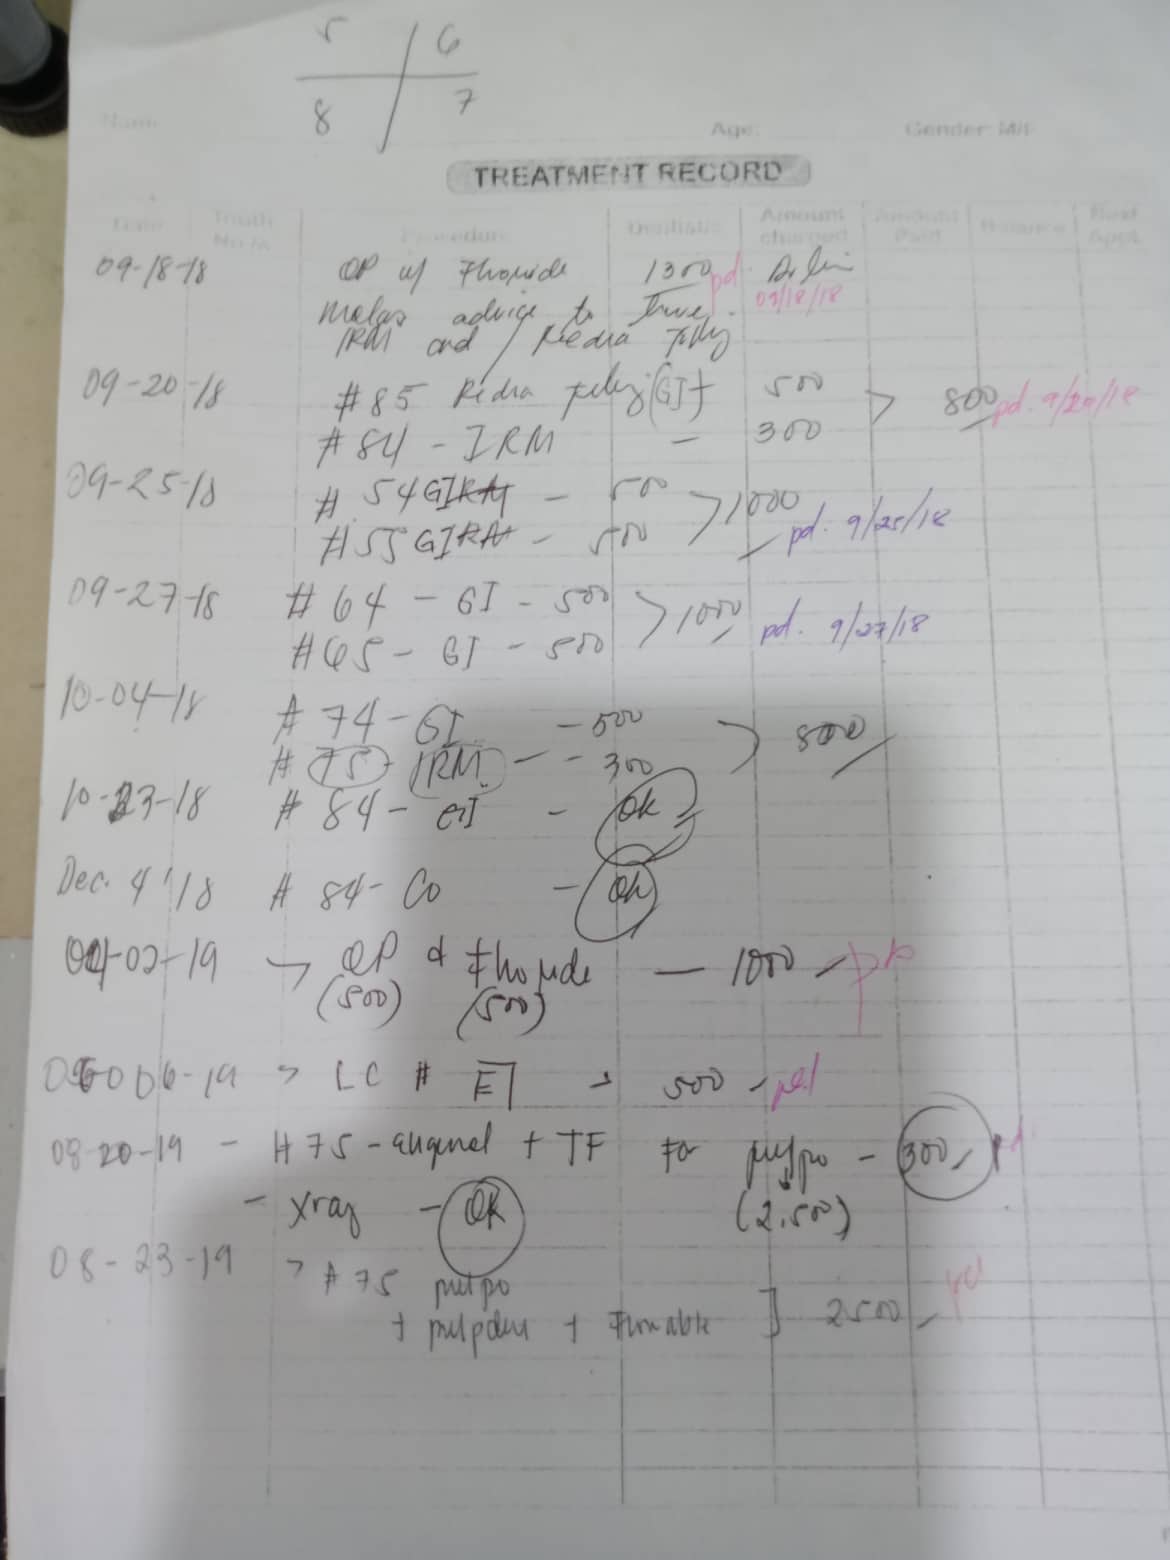 5 6
8 7
Name Age: Gender: M/F
TREATMENT RECORD
Date Tooth No./s Procedure Dentist/s Amount charged Amount Paid Balance Next Appt.
09-18-18 OP w/ Flouride 1300 pd.
advice to 09/18/18
IRM and
09-20-18 #85 (GI) 500 > 800 pd. 9/20/18
#84 - IRM - 300
09-25-18 # 54 GI - 500 > 1000
#55 GI - 500 pd. 9/25/18
09-27-18 # 64 - GI - 500 > 1000 pd. 9/27/18
#65 - GI - 500
10-04-18 # 74 - GI - 500 > 800
# 75 - IRM - - 300
10-23-18 # 84 - GI - OK
Dec. 4 '18 # 84 - Co - OK
-02-19 → OP & Flouride - 1000 -
(500) (500)
06-19 > LC # E → 500 - pd
08-20-19 - # 75 - + TF for pulpo - 300 pd
- xray - OK (2,500)
08-23-19 > # 75 pulpo
+ + ] 2500 pd